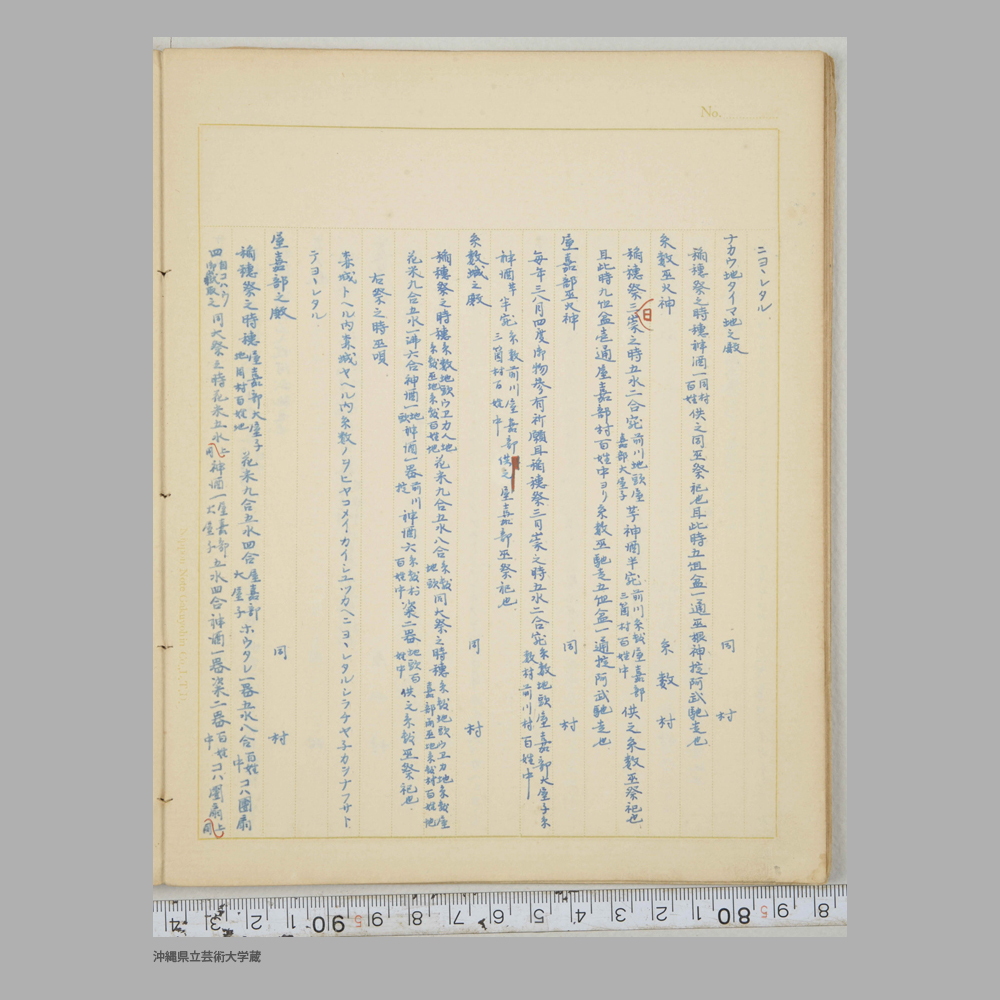 No.
ニヨヽレタル
ナカウ地タイマ地之殿 同村
稲穂祭之時穂神酒一同村百姓供之同巫祭祀也且此時五俎盆一通巫根神掟阿武馳走也
糸数巫火神 糸数村
稲穂祭三祟日之時五水二合宛前川地頭屋嘉部大屋子芋神酒半宛前川糸数屋嘉部三箇村百姓中供之糸数巫祭祀也
且此時九俎盆壱通屋嘉部村百姓中ヨリ糸数巫馳走五俎盆一通掟阿武馳走也
屋嘉部巫火神 同村
毎年三八月四度御物参有祈願且稲穂祭三日祟之時五水二合宛糸数地頭屋嘉部大屋子糸数村前川村百姓中
神酒芋半宛糸数前川屋嘉部三箇村百姓中供之屋嘉部巫祭祀也
糸数城之殿 同村
稲穂祭之時穂糸数地頭ウ卫カ人地糸数巫地糸数百姓地花米九合五水八合糸数地頭同大祭之時穂糸数地頭ウ卫カ地糸数屋嘉部両巫地糸数村百姓地
花米九合五水一沸六合神酒一地頭神酒一器前川掟神酒六糸数村百姓中楽二器地頭百姓中供之糸数巫祭祀也
右祭之時巫唄
森城トヘル内森城ヤヘル内糸数ノヲヒヤコメイカイシユツカヘニヨヽレタルシラケヤ子カツナフサト
テヨヽレタル
屋嘉部之殿 同村
稲穂祭之時穂屋嘉部大屋子地同村百姓地花米九合五水四合屋嘉部大屋子ホウタレ一器五水八合百姓中コハ團扇
四自コハウ御蔵取之同大祭之時花米五水上同神酒一屋嘉部大屋子五水四合神酒一器楽二器百姓中コハ團扇上同
80 90
沖縄県立芸術大学蔵